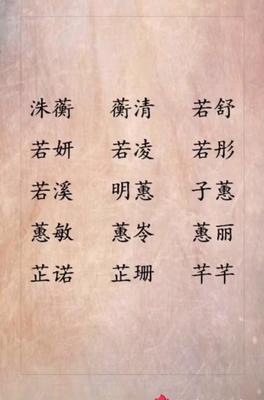 洙蘅 蘅清 若舒
若妍 若凌 若彤
若溪 明蕙 子蕙
蕙敏 蕙岺 蕙丽
芷诺 芷珊 芊芊